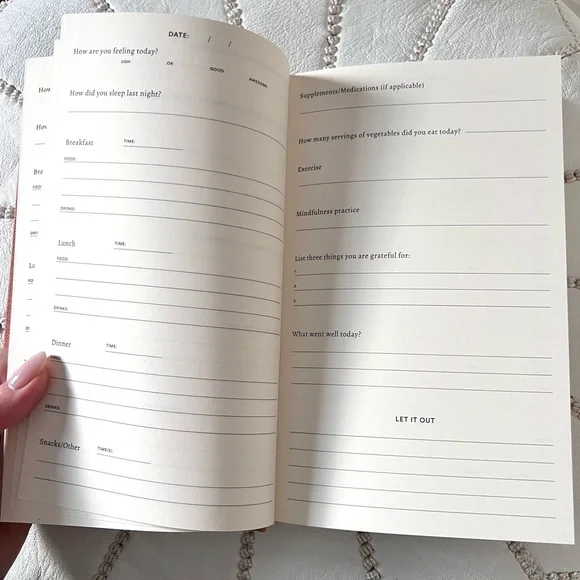 DATE: / /
How are you feeling today?
UGH OK GOOD AWESOME
How did you sleep last night?
Breakfast TIME:
FOOD:
DRINKS:
Lunch TIME:
FOOD:
DRINKS:
Dinner TIME:
FOOD:
DRINKS:
Snacks/Other TIME(S):
Supplements/Medications (if applicable)
How many servings of vegetables did you eat today?
Exercise
Mindfulness practice
List three things you are grateful for:
1.
2.
3.
What went well today?
LET IT OUT